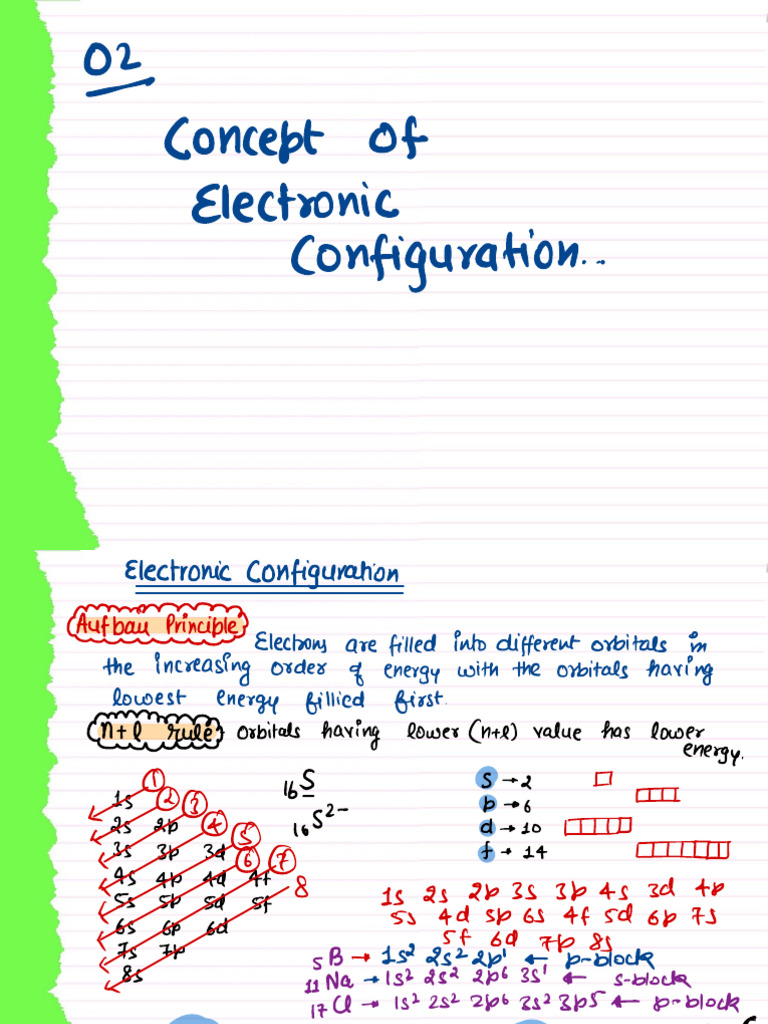 02
Concept of
Electronic
Configuration..
Electronic Configuration
Aufbau Principle
Electrons are filled into different orbitals in
the increasing order of energy with the orbitals having
lowest energy fillied first.
n+l rule orbitals having lower (n+l) value has lower
energy.
1 2 3 4 5 6 7 8
1s
2s 2p
3s 3p 3d
4s 4p 4d 4f
5s 5p 5d 5f
6s 6p 6d
7s 7p
8s
₁₆S
₁₆S²⁻
S → 2
p → 6
d → 10
f → 14
1s 2s 2p 3s 3p 4s 3d 4p
5s 4d 5p 6s 4f 5d 6p 7s
5f 6d 7p 8s
₅B → 1s² 2s² 2p¹ ← p-block
₁₁Na → 1s² 2s² 2p⁶ 3s¹ ← s-block
₁₇Cl → 1s² 2s² 2p⁶ 3s² 3p5 ← p-block